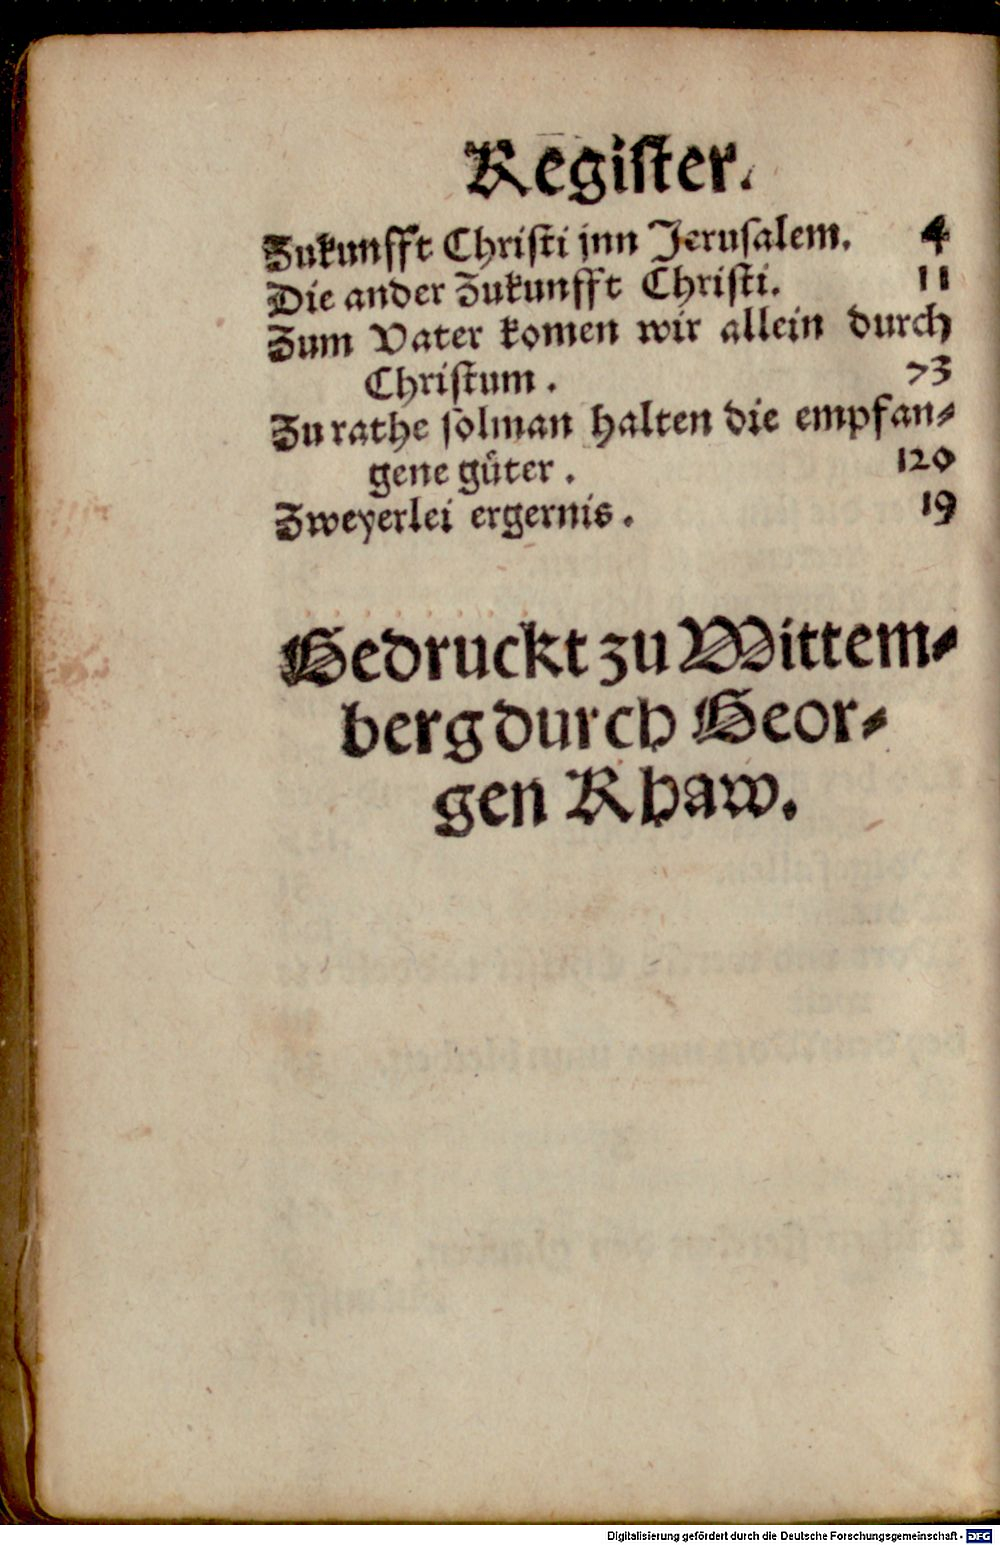 Register.
Zukunfft Christi jnn Jerusalem. 4
Die ander Zukunfft Christi. 11
Zum Vater komen wir allein durch
Christum. 73
Zu rathe solman halten die empfan⸗
gene güter. 120
Zweyerlei ergernis. 19
Gedruckt zu Wittem⸗
berg durch Geor⸗
gen Rhaw.
Digitalisierung gefördert durch die Deutsche Forschungsgemeinschaft - DFG